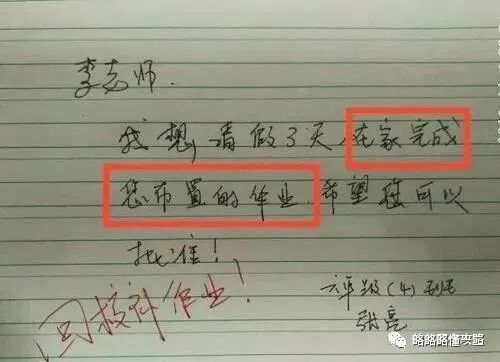 李老师.
我想,请假3天,在家完成
您布置的作业.希望您可以
批准!
回校补作业!
六年级(4)班
张亮
略略略懂